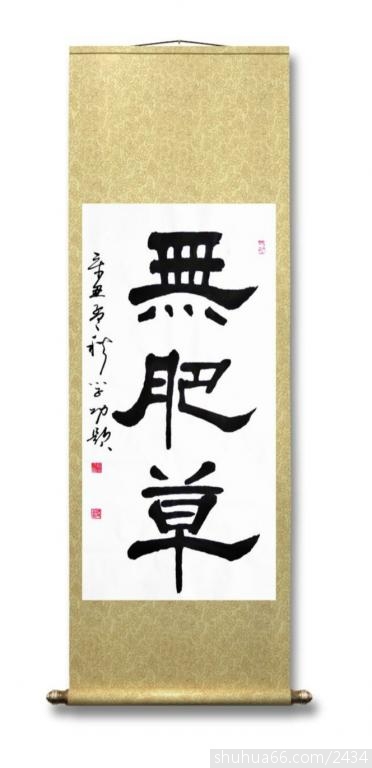 無肥草
辛丑孟秋學功題
shuhua66.com/2434